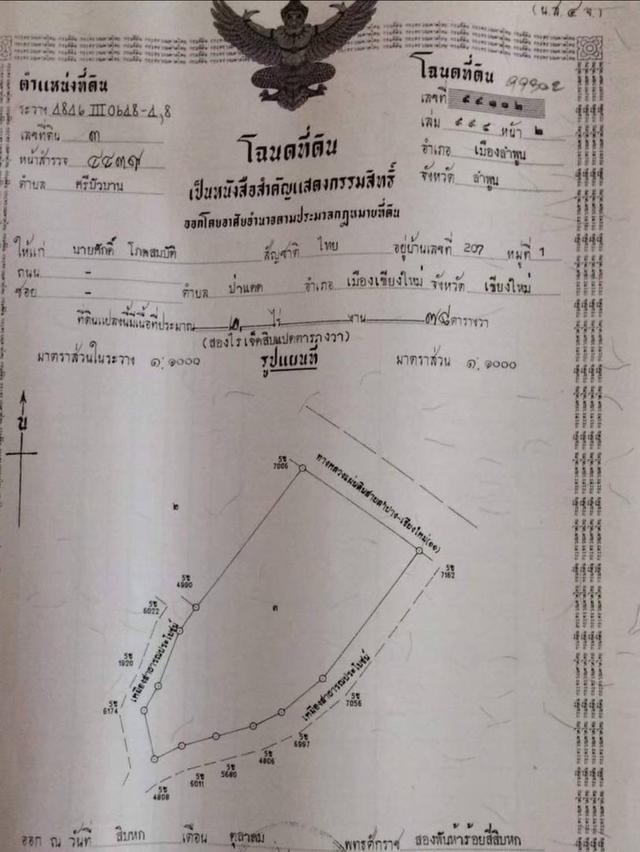 (น.ส. ๔ จ.)
ตำแหน่งที่ดิน
ระวาง 4846 III 0648-4,8
เลขที่ดิน ๓
หน้าสำรวจ
ตำบล ศรีบัวบาน
โฉนดที่ดิน 99302
เลขที่
เล่ม หน้า ๒
อำเภอ เมืองลำพูน
จังหวัด ลำพูน
โฉนดที่ดิน
เป็นหนังสือสำคัญแสดงกรรมสิทธิ์
ออกโดยอาศัยอำนาจตามประมวลกฎหมายที่ดิน
ให้แก่ นายศักดิ์ โภคสมบัติ สัญชาติ ไทย อยู่บ้านเลขที่ 207 หมู่ที่ 1
ถนน -
ซอย - ตำบล ป่าแดด อำเภอ เมืองเชียงใหม่ จังหวัด เชียงใหม่
ที่ดินแปลงนี้มีเนื้อที่ประมาณ ๒ ไร่ - งาน ๗๘ ตารางวา
(สองไร่เจ็ดสิบแปดตารางวา)
มาตราส่วนในระวาง ๑: ๑๐๐๐ รูปแผนที่ มาตราส่วน ๑: ๑๐๐๐
น
วช 7006
ทางหลวงแผ่นดินสายลำปาง-เชียงใหม่(๑๑)
๒
วช 7162
วช 4990
วช 6022
๓
วช 1920
เหมืองสาธารณประโยชน์
วช 6174
เหมืองสาธารณประโยชน์
วช 7056
วช 6997
วช 4806
วช 5680
วช 6011
วช 4808
ออก ณ วันที่ สิบหก เดือน ตุลาคม พุทธศักราช สองพันห้าร้อยสี่สิบหก